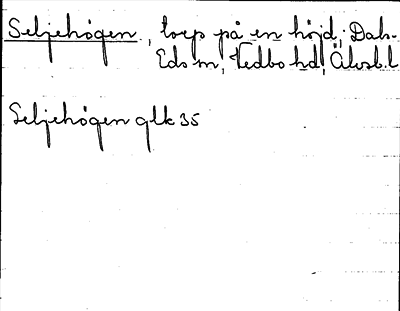 Seljehögen, torp på en höjd; Dals-
Eds sn, Vedbo hd, Älvsb. l
Seljehögen glk 35